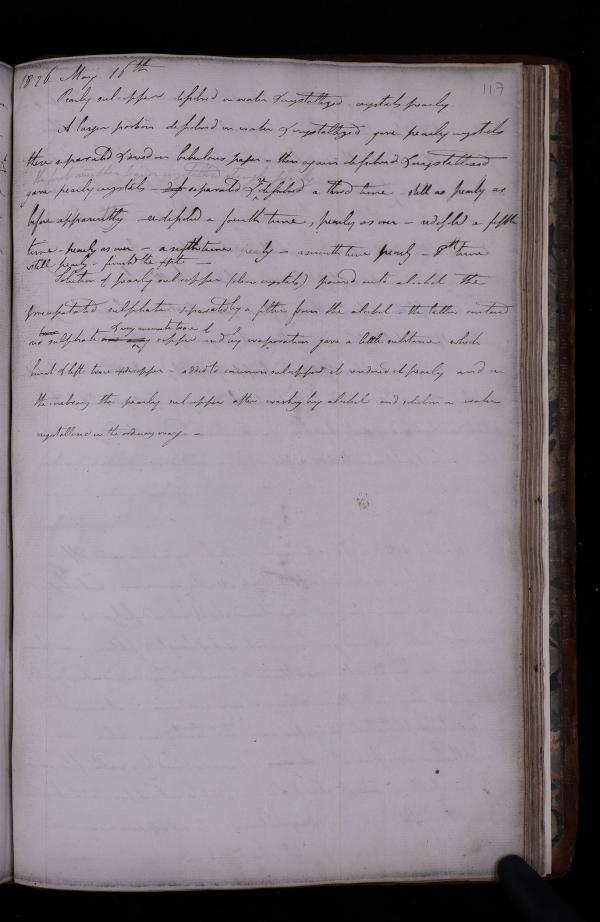 117
1826 May 16th
Pearly sul copper dissolved in water & crystallized. crystals pearly.
A larger portion dissolved in water & crystallized gave pearly crystals
these separated & dried on bibulous paper - then again dissolved & crystallized
gave pearly crystals separated & dissolved a third time still as pearly as
before apparently - redissolved a fourth time, pearly as ever - redissolved a fifth
time - pearly as ever - a sixth time pearly - a seventh time pearly - 8th time
still pearly -
Solution of pearly sul copper (clear crystals) poured into alcohol the
precipitated sulphate separated by a filter from the alcohol - the latter contained
no sulphate & very minute trace of copper and by evaporation gave a little substance which
burnt & left trace copper - added to common sul copper it rendered it pearly and on
the contrary the pearly sul copper after washing by alcohol and solution in water
crystallized in the ordinary way. -